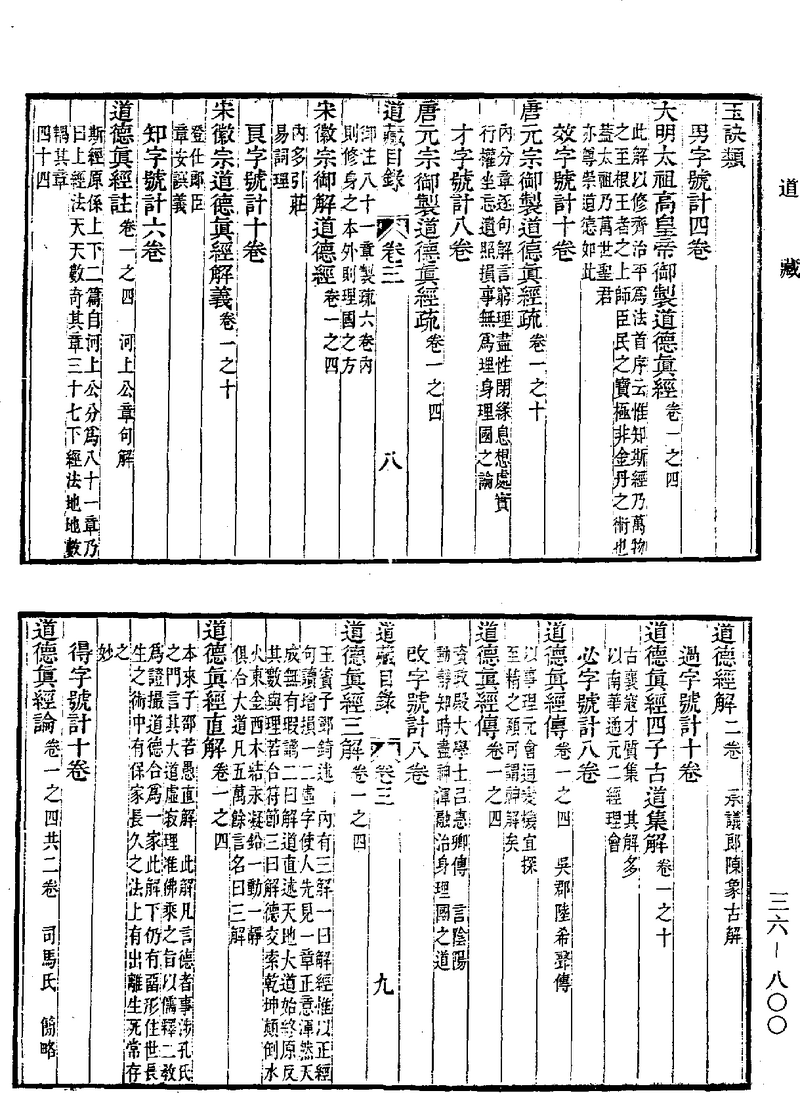 道藏
玉訣類
男字號計四卷
大明太祖高皇帝御製道德眞經 卷一之四
此解以修齊治平爲法首序云惟知斯經乃萬物
之至根王者之上師臣民之寶極非金丹之術也
蓋太祖乃萬世聖君
亦尊崇道德如此
效字號計十卷
唐元宗御製道德眞經疏 卷一之十
內分章逐句解言窮理盡性閉緣息想處實
行權坐忘遺照損事無爲理身理國之論
才字號計八卷
唐元宗御製道德眞經疏 卷一之四
道藏目錄 卷三 八
御注八十一章製疏六卷內
則修身之本外則理國之方
宋徽宗御解道德經 卷一之四
內多引莊
易詞理
良字號計十卷
宋徽宗道德眞經解義 卷一之十
登仕郞臣
章安譔義
知字號計六卷
道德眞經註 卷一之四 河上公章句解
斯經原係上下二篇自河上公分爲八十一章乃
曰上經法天天數奇其章三十七下經法地地數
耦其章
四十四
道德經解 二卷 承議郞陳象古解
過字號計十卷
道德眞經四子古道集解 卷一之十
古襄寇才質集 其解多
以南華通元二經理會
必字號計八卷
道德眞經傳 卷一之四 吳郡陸希聲傳
以事理元會適變機宜探
至精之頤可謂神解矣
道德眞經傳 卷一之四
資政殿大學士呂惠卿傳 言陰陽
動靜知時盡神渾融治身理國之道
改字號計八卷
道藏目錄 卷三 九
道德眞經三解 卷一之四
王賓子鄧錡述 內有三解一曰解經惟以正經
句讀增損一二虛字使人先見一章正意渾然天
成無有瑕謫二曰解道直述天地大道始終原反
其數與理若合符節三曰解德交索乾坤顛倒水
火東金西木結汞凝鉛一動一靜
俱合大道凡五萬餘言名曰三解
道德眞經直解 卷一之四
本來子邵若愚直解 此解凡言德者事涉孔氏
之門言其大道虛寂理準佛乘之旨以儒釋二敎
爲證撮道德合爲一家此解下仍有畱形住世長
生之術中有保家長久之法上有出離生死常存
之
妙
得字號計十卷
道德眞經論 卷一之四共二卷 司馬氏 簡略
三六—八〇〇